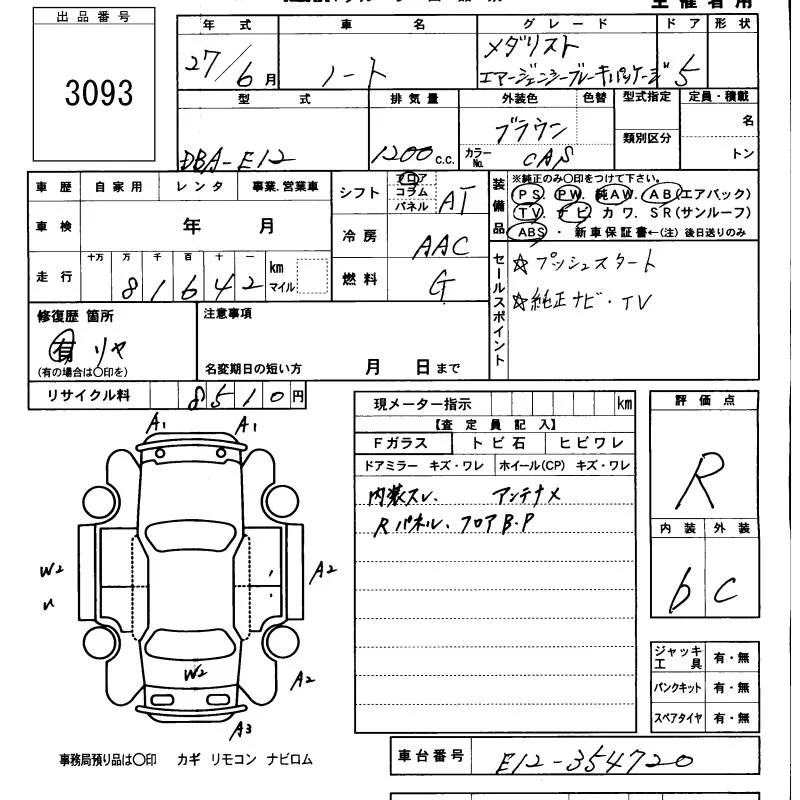 出品番号
3093
主催者用
年式 車名 グレード ドア 形状
27/6月 ノート メダリスト
エマージェンシーブレーキパッケージ 5
型式 排気量 外装色 色替 型式指定 定員・積載
DBA-E12 1200c.c. ブラウン 名
カラーNo. CAS 類別区分 トン
車歴 自家用 レンタ 事業.営業車
車検 年 月
走行 十万 万 千 百 十 一
81642 km マイル
シフト フロア コラム パネル AT
冷房 AAC
燃料 G
装備品 ※純正のみ○印をつけて下さい。
PS. PW. 純AW. AB(エアバック)
TV. ナビ カワ. SR(サンルーフ)
ABS ・ 新車保証書←(注) 後日送りのみ
セールスポイント
☆プッシュスタート
☆純正ナビ・TV
修復歴 箇所
有 リヤ
(有の場合は○印を)
注意事項
名変期日の短い方 月 日まで
リサイクル料 8510円
現メーター指示 km
【査定員記入】
Fガラス トビ石 ヒビワレ
ドアミラー キズ・ワレ ホイール(CP) キズ・ワレ
内装スレ、 アンテナメ
Rパネル、フロアB.P
評価点
R
内装 外装
b C
ジャッキ工具 有・無
パンクキット 有・無
スペアタイヤ 有・無
A1 A1
W2
A2
W2
A2
A3
事務局預り品は○印 カギ リモコン ナビロム
車台番号 E12-354720